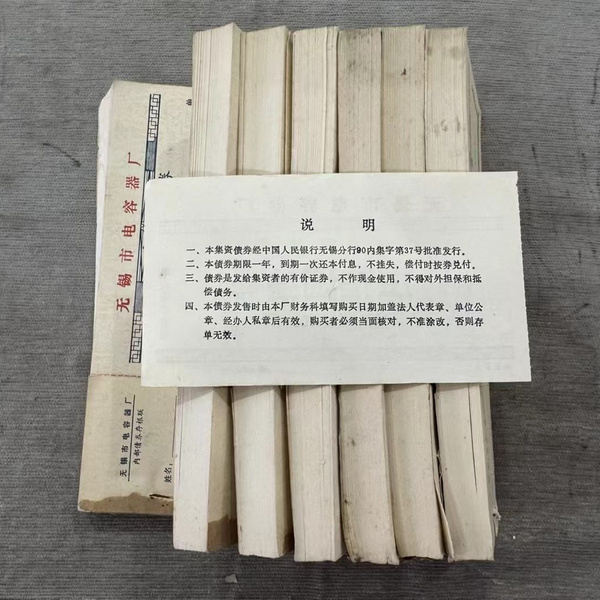 说 明
一、本集资债券经中国人民银行无锡分行90内集字第37号批准发行。
二、本债券期限一年，到期一次还本付息，不挂失，偿付时按券兑付。
三、债券是发给集资者的有价证券，不作现金使用，不得对外担保和抵
偿债务。
四、本债券发售时由本厂财务科填写购买日期加盖法人代表章、单位公
章、经办人私章后有效，购买者必须当面核对，不准涂改，否则存
单无效。
无锡市电容器厂
无锡市电容器厂
内部债券存根联
姓名：